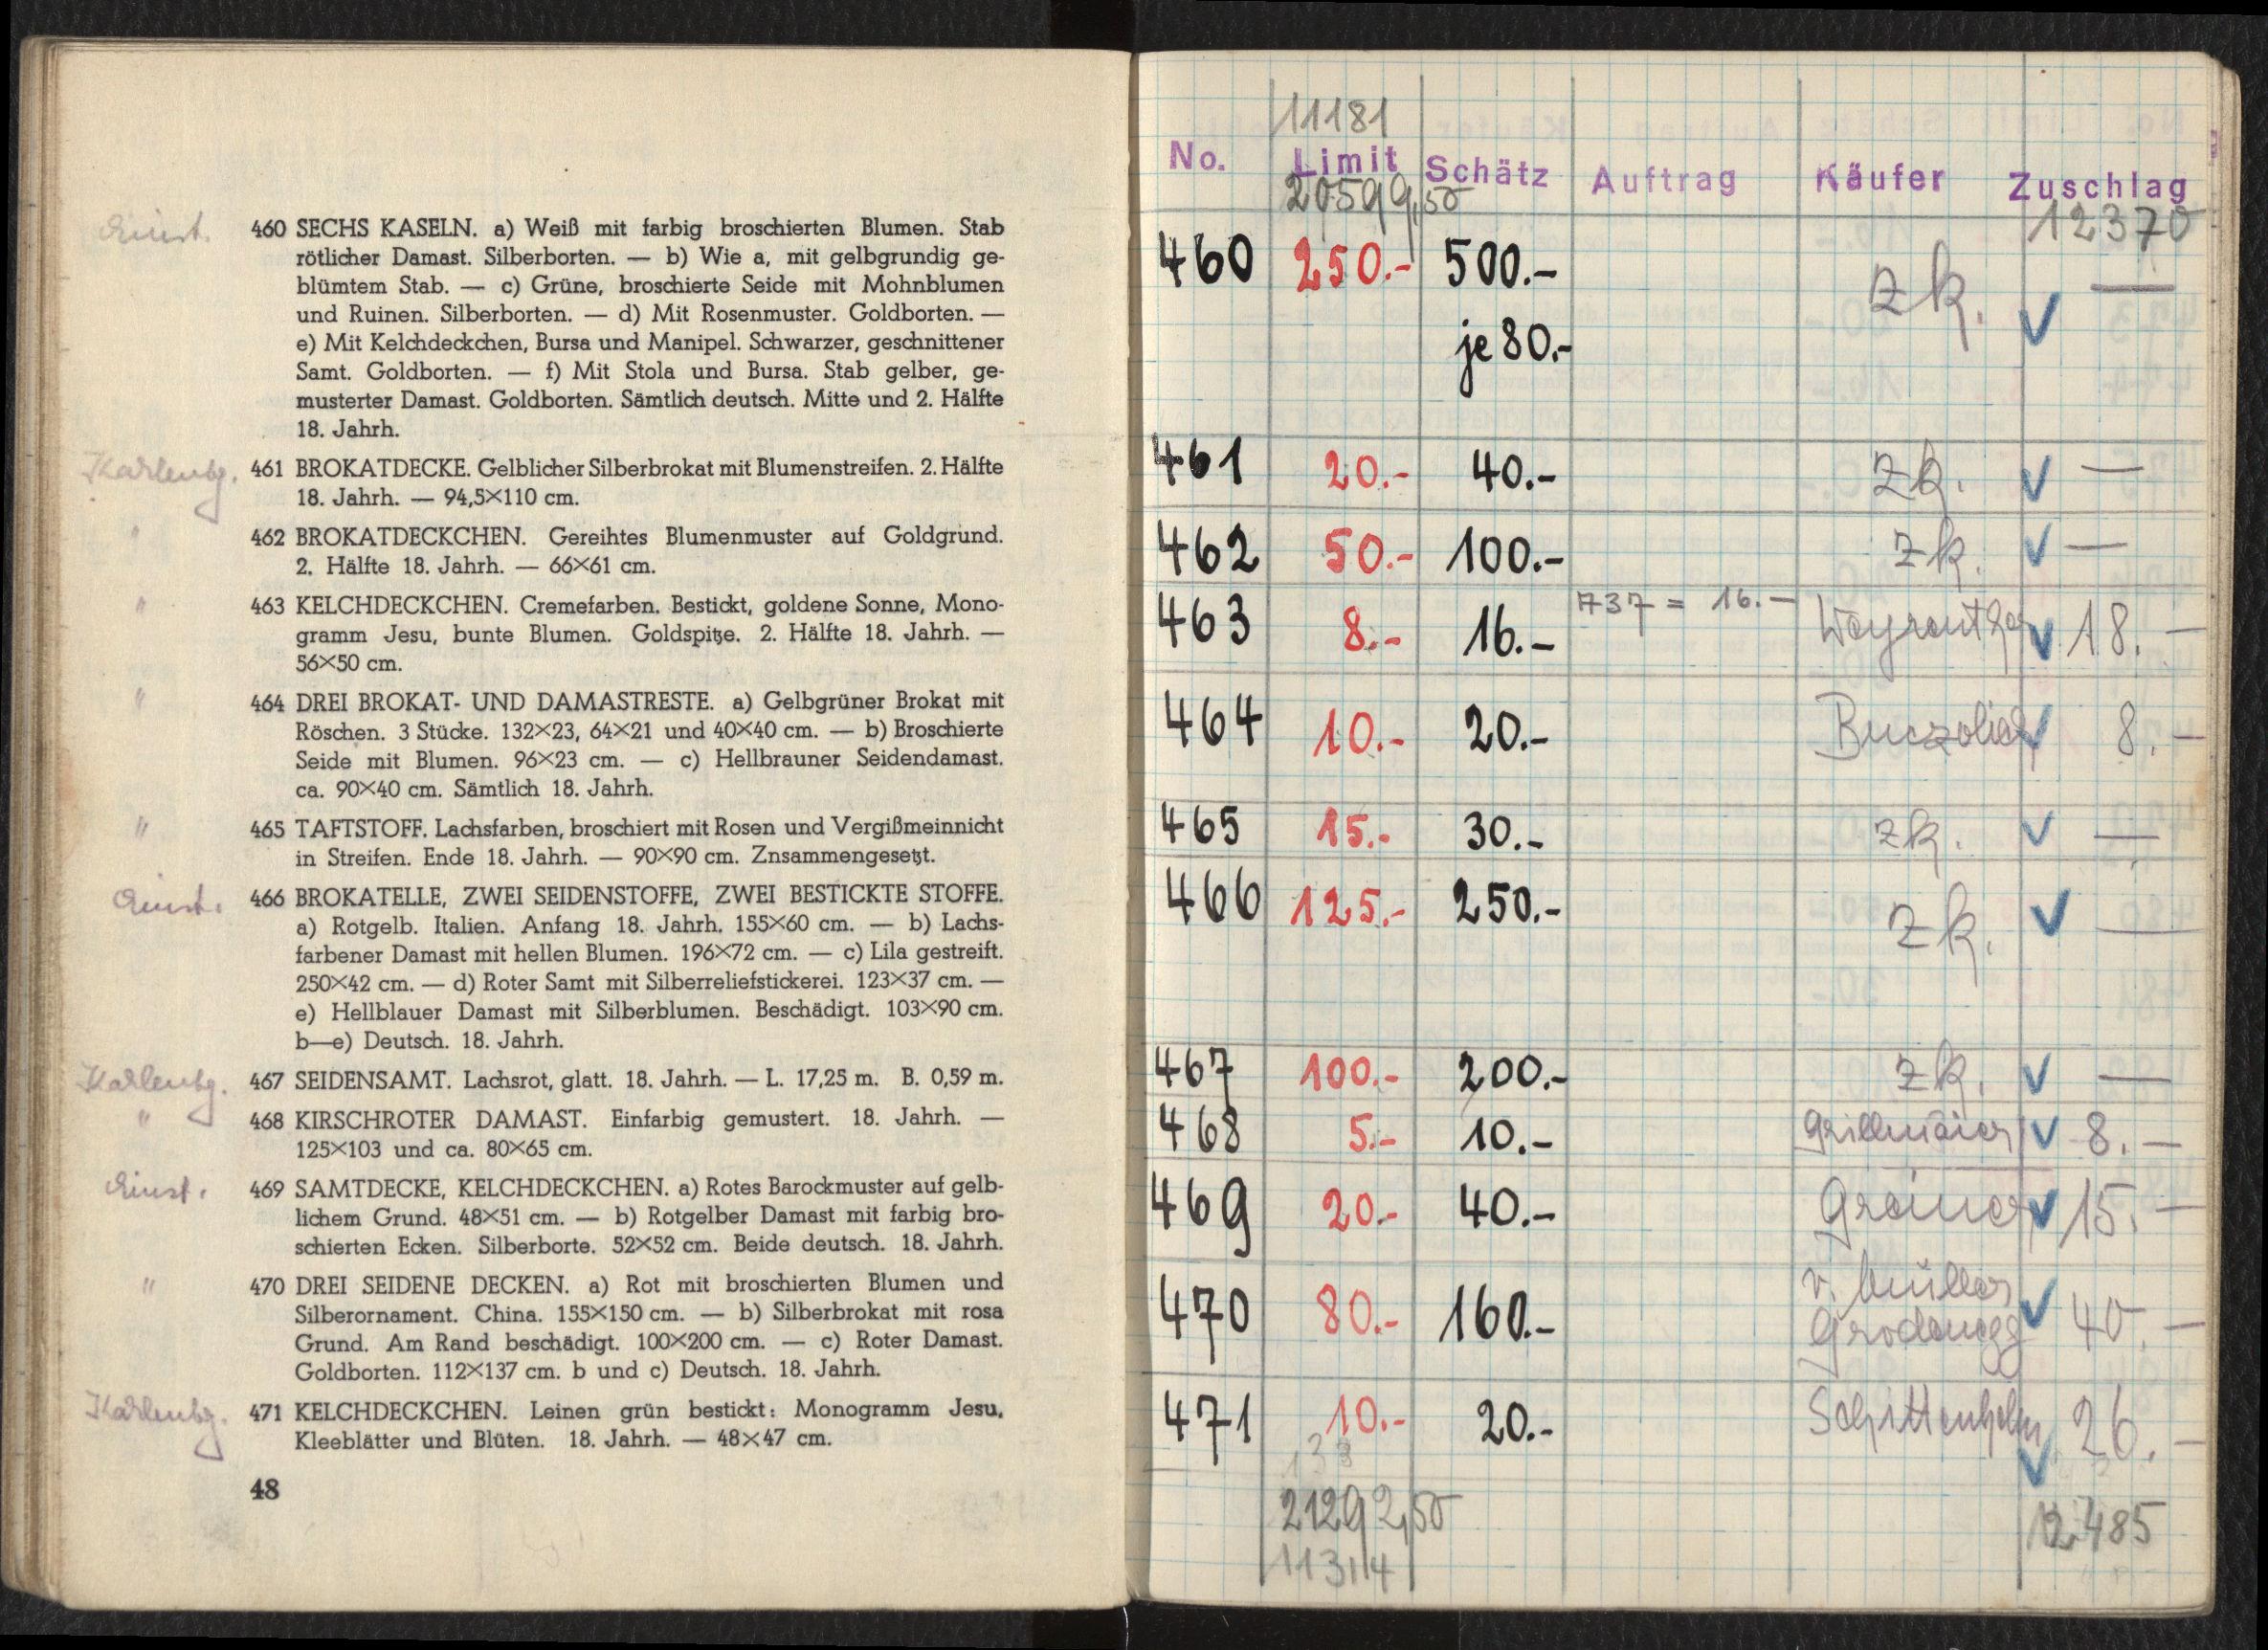 460 SECHS KASELN. a) Weiß mit farbig broschierten Blumen. Stab
rötlicher Damast. Silberborten. — b) Wie a, mit gelbgrundig ge-
blümtem Stab. — c) Grüne, broschierte Seide mit Mohnblumen
und Ruinen. Silberborten. — d) Mit Rosenmuster. Goldborten. —
e) Mit Kelchdeckchen, Bursa und Manipel. Schwarzer, geschnittener
Samt. Goldborten. — f) Mit Stola und Bursa. Stab gelber, ge-
musterter Damast. Goldborten. Sämtlich deutsch. Mitte und 2. Hälfte
18. Jahrh.
461 BROKATDECKE. Gelblicher Silberbrokat mit Blumenstreifen. 2. Hälfte
18. Jahrh. — 94,5×110 cm.
" 462 BROKATDECKCHEN. Gereihtes Blumenmuster auf Goldgrund.
2. Hälfte 18. Jahrh. — 66×61 cm.
" 463 KELCHDECKCHEN. Cremefarben. Bestickt, goldene Sonne, Mono-
gramm Jesu, bunte Blumen. Goldspitze. 2. Hälfte 18. Jahrh. —
56×50 cm.
" 464 DREI BROKAT- UND DAMASTRESTE. a) Gelbgrüner Brokat mit
Röschen. 3 Stücke. 132×23, 64×21 und 40×40 cm. — b) Broschierte
Seide mit Blumen. 96×23 cm. — c) Hellbrauner Seidendamast.
ca. 90×40 cm. Sämtlich 18. Jahrh.
" 465 TAFTSTOFF. Lachsfarben, broschiert mit Rosen und Vergißmeinnicht
in Streifen. Ende 18. Jahrh. — 90×90 cm. Znsammengesetzt.
466 BROKATELLE, ZWEI SEIDENSTOFFE, ZWEI BESTICKTE STOFFE.
a) Rotgelb. Italien. Anfang 18. Jahrh. 155×60 cm. — b) Lachs-
farbener Damast mit hellen Blumen. 196×72 cm. — c) Lila gestreift.
250×42 cm. — d) Roter Samt mit Silberreliefstickerei. 123×37 cm. —
e) Hellblauer Damast mit Silberblumen. Beschädigt. 103×90 cm.
b—e) Deutsch. 18. Jahrh.
467 SEIDENSAMT. Lachsrot, glatt. 18. Jahrh. — L. 17,25 m. B. 0,59 m.
" 468 KIRSCHROTER DAMAST. Einfarbig gemustert. 18. Jahrh. —
125×103 und ca. 80×65 cm.
469 SAMTDECKE, KELCHDECKCHEN. a) Rotes Barockmuster auf gelb-
lichem Grund. 48×51 cm. — b) Rotgelber Damast mit farbig bro-
schierten Ecken. Silberborte. 52×52 cm. Beide deutsch. 18. Jahrh.
" 470 DREI SEIDENE DECKEN. a) Rot mit broschierten Blumen und
Silberornament. China. 155×150 cm. — b) Silberbrokat mit rosa
Grund. Am Rand beschädigt. 100×200 cm. — c) Roter Damast.
Goldborten. 112×137 cm. b und c) Deutsch. 18. Jahrh.
471 KELCHDECKCHEN. Leinen grün bestickt: Monogramm Jesu,
Kleeblätter und Blüten. 18. Jahrh. — 48×47 cm.
48
11181
No. Limit Schätz Auftrag Käufer Zuschlag
20599,50 12370
460 250.- 500.- zk. ✓ —
je 80.-
461 20.- 40.- zk. ✓ —
462 50.- 100.- zk. ✓ —
463 8.- 16.- 737 = 16.- ✓ 18.-
464 10.- 20.- ✓ 8.-
465 15.- 30.- zk. ✓ —
466 125.- 250.- zk. ✓ —
467 100.- 200.- zk. ✓ —
468 5.- 10.- Grillmaier ✓ 8.-
469 20.- 40.- Greiner ✓ 15.-
470 80.- 160.- v. Müller ✓ 40.-
471 10.- 20.- Schittenhelm ✓ 26.-
21292,50 12485
11314